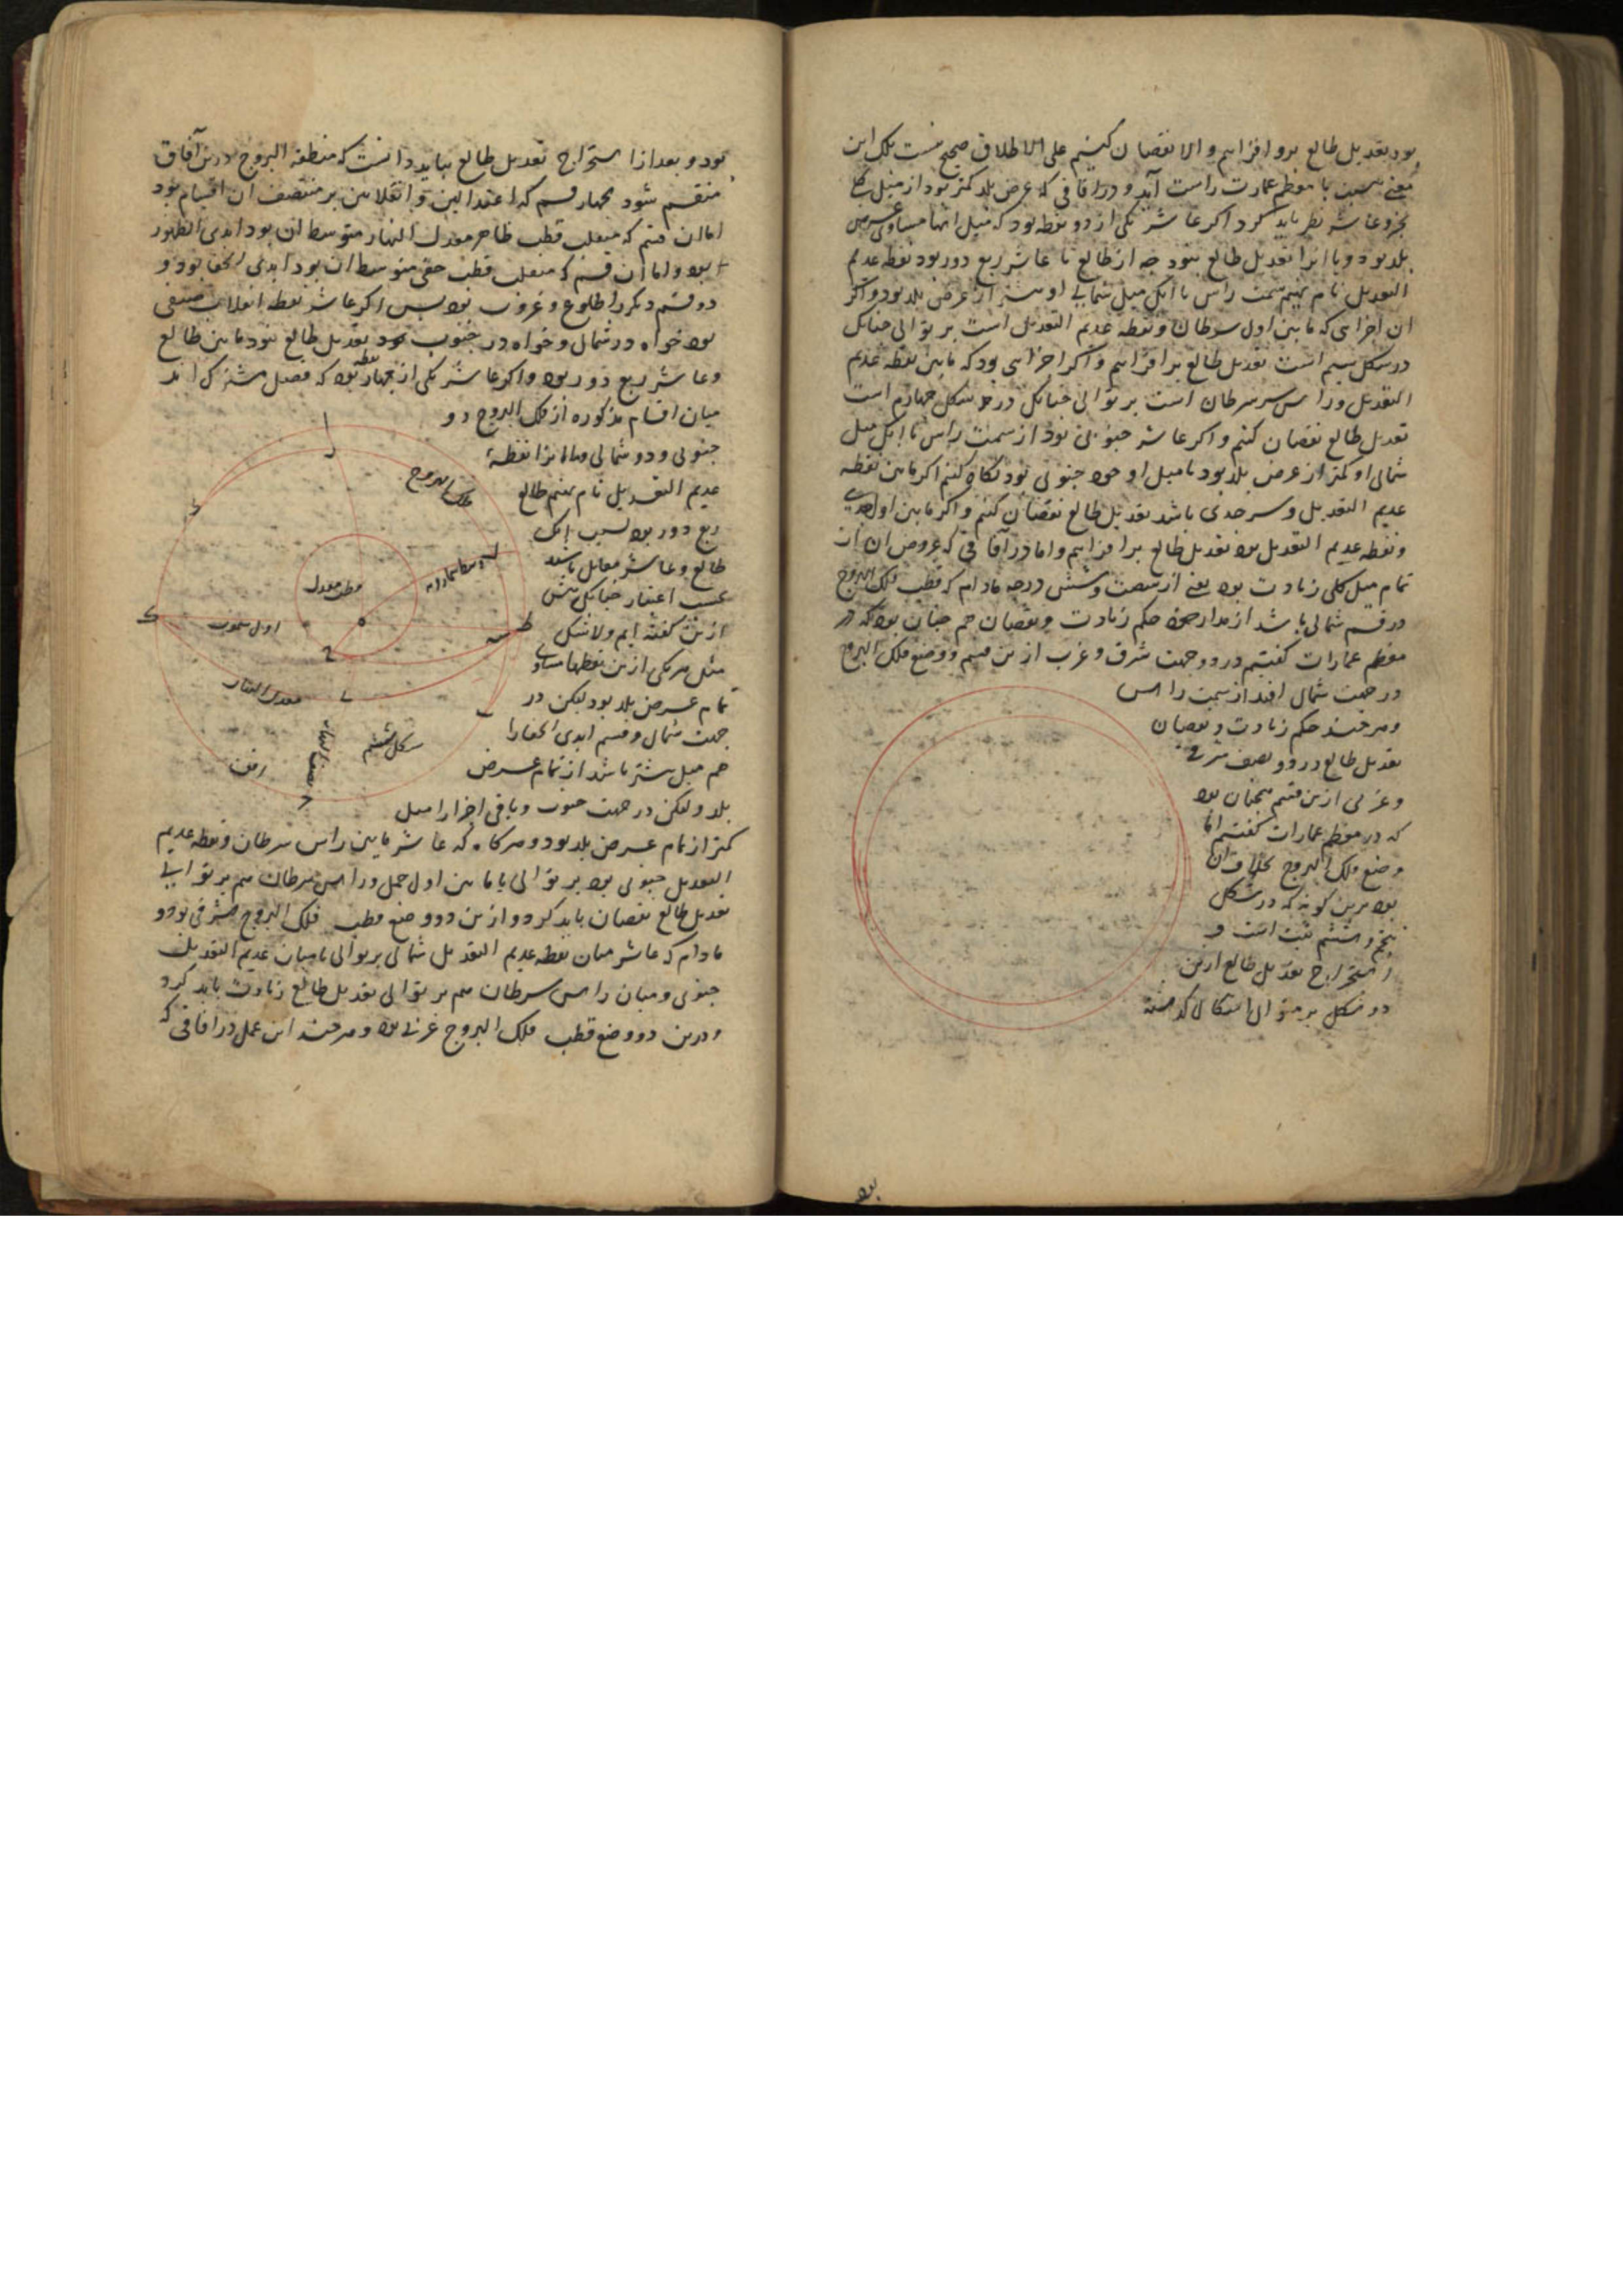 بود تعدیل طالع برو افزاییم والا نقصان کنیم علی الاطلاق صحیح نیست بلک این
معنی نسبت با معظم عمارت راست آید و در آفاقی که عرض بلد کمتر بود از میل کلی
بجزو عاشر نظر باید کرد اکر عاشر یکی از دو نقطه بود که میل انها مساوی عرض
بلد بود ویا انرا تعدیل طالع نبود چه از طالع تا عاشر ربع دور بود نقطه عدیم
التعدیل نام نهیم سمت راس تا انک میل شمالی او بیشتر از عرض بلد بود و اکر
ان اجزایی که مابین اول سرطان و نقطه عدیم التعدیل است بر توالی چنانک
در شکل سیم است تعدیل طالع بر افزاییم و اکر اجزایی بود که مابین نقطه عدیم
التعدیل و راس سرطان است بر توالی چنانک در شکل چهارم است
تعدیل طالع نقصان کنیم و اکر عاشر جنوبی بود از سمت راس تا انک میل
شمالی او کمتر از عرض بلد بود تا میل او خود جنوبی بود نکاه کنیم اکر مابین نقطه
عدیم التعدیل و سر جدی باشد تعدیل طالع نقصان کنیم و اکر مابین اول جدی
و نقطه عدیم التعدیل بود تعدیل طالع بر افزاییم واما در آفاقی که عروض ان از
تمام میل کلی زیادت بود یعنی از شصت وشش درجه مادام که قطب فلک البروج
در قسم شمالی باشد از مدار خود حکم زیادت و نقصان هم چنان بود که در
معظم عمارات کفتیم در دو جهت شرق و غرب ازین قسم و وضع فلک البروج
در جهت شمال افتد از سمت راس
و هر چند حکم زیادت و نقصان
تعدیل طالع در دو نصف شرقی
و غربی ازین قسم همچنان بود
که در معظم عمارات کفتیم اما
وضع فلک البروج بخلاف ان
بود برین کونه که در شکل
پنجم و ششم ثبت است و
استخراج تعدیل طالع ازین
دو شکل بر منوال اشکال کذشته
بود
بود و بعد از استخراج تعدیل طالع بباید دانست که منطقة البروج درین آفاق
منقسم شود بچهار قسم که اعتدالین و انقلابین بر منتصف ان اقسام بود
اما ان قسم که منقلب قطب ظاهر معدل النهار متوسط ان بود ابدی الظهور
بود و اما ان قسم که منقلب قطب خفی متوسط ان بود ابدی الخفا بود و
دو قسم دیکر را طلوع و غروب بود پس اکر عاشر نقطه انقلاب صیفی
بود خواه در شمال و خواه در جنوب تعدیل طالع نبود مابین طالع
و عاشر ربع دور بود و اکر عاشر یکی از چهار نقطه بود که فصل مشترک اند
میان اقسام مذکوره از فلک البروج دو
جنوبی و دو شمالی و ما انرا نقطهٔ
عدیم التعدیل نام نهیم طالع
ربع دور بود بسبب انک
طالع و عاشر مقابل باشند
بحسب اعتبار چنانک پیش
ازین کفته ایم ولاشک
میل هر یکی ازین نقطها مساوی
تمام عرض بلد بود لیکن در
جهت شمال و قسم ابدی الخفا را
هم میل بیشتر باشد از تمام عرض
بلد ولکن در جهت جنوب و باقی اجزا را میل
کمتر از تمام عرض بلد بود و هرکاه که عاشر مابین راس سرطان و نقطه عدیم
التعدیل جنوبی بود بر توالی یا مابین اول حمل و راس سرطان هم بر توالی
تعدیل طالع نقصان باید کرد و ازین دو وضع قطب فلک البروج شرقی بود و
مادام که عاشر میان نقطه عدیم التعدیل شمالی بر توالی تا میان عدیم التعدیل
جنوبی و میان راس سرطان هم بر توالی تعدیل طالع زیادت باید کرد
و درین دو وضع قطب فلک البروج غربی بود و هر چند این عمل در آفاقی که
فلک البروج
وسط سماء الرویه
قطب معدل
اول سموت
معدل النهار
شکل ششم
نصف النهار
افق